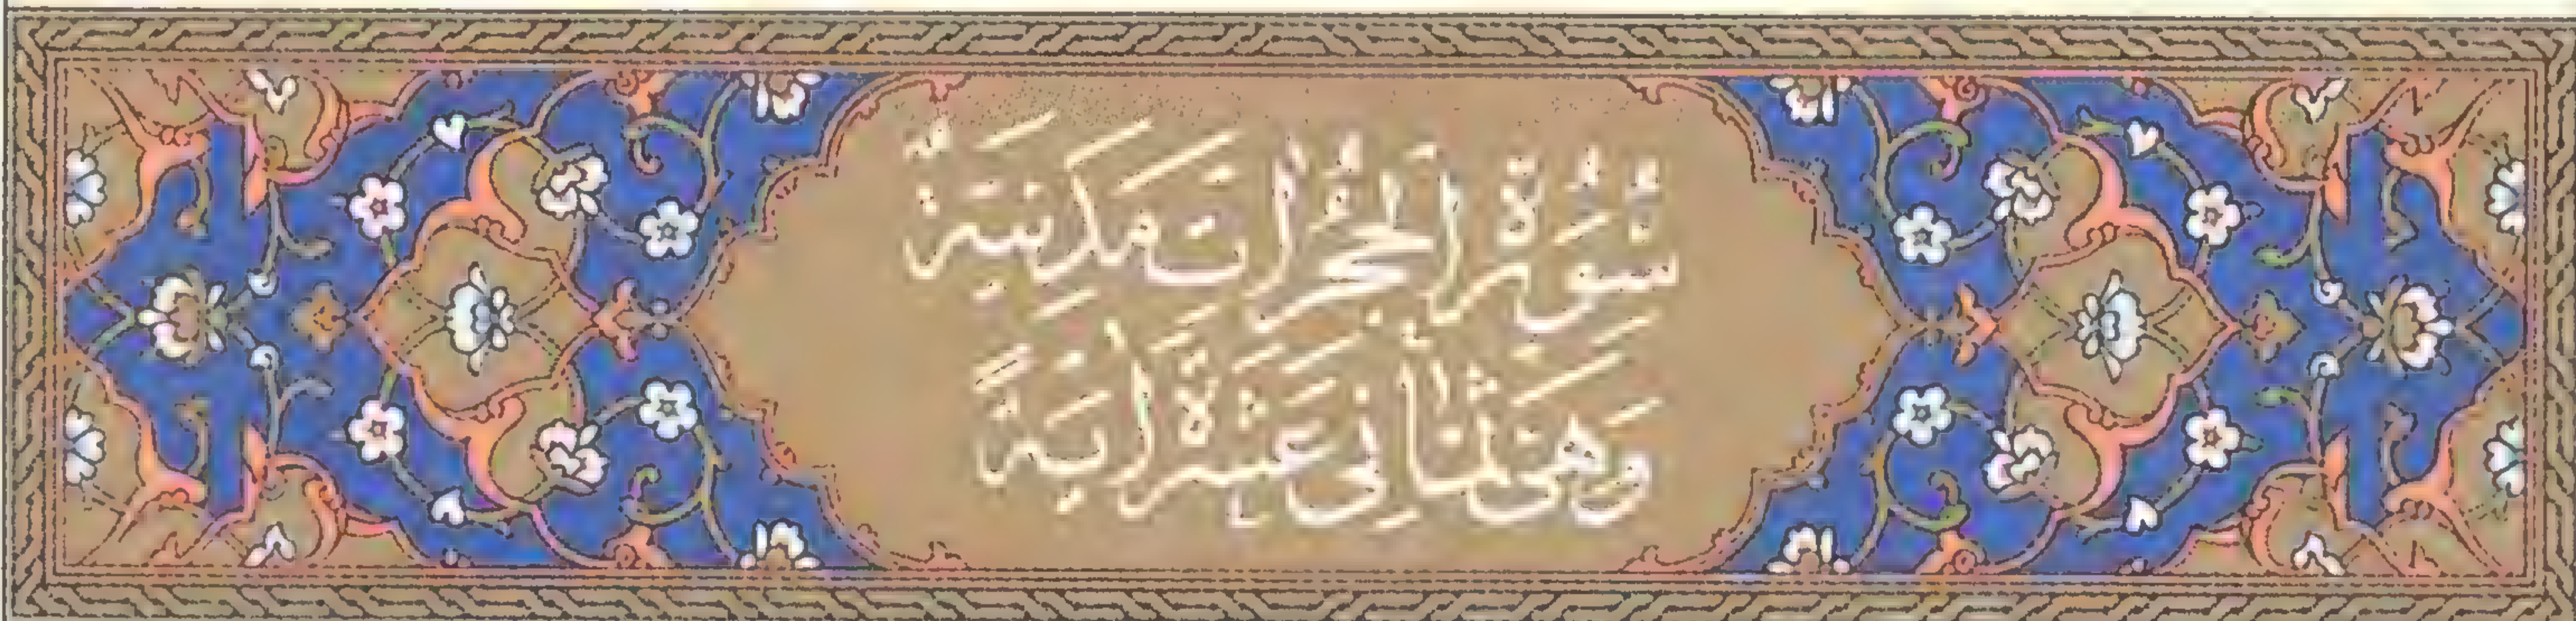 سُورَةُ الْحُجُرَاتِ مَدَنِيَّةٌ
وَهِيَ ثَمَانِي عَشْرَةَ آيَةً